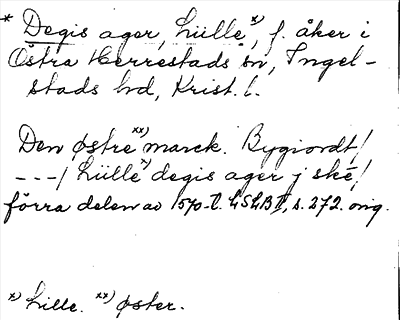 * Degis ager, Lülle x), f. åker i
Östra Herrestads sn, Ingel-
stads hd, Krist. l.
Den østre xx) marck. Bygiordt /
- - - / Lülle x) degis ager j ské /
förra delen av 1570-t. LSLB II, s. 272. orig.
x) Lille. xx) øster.